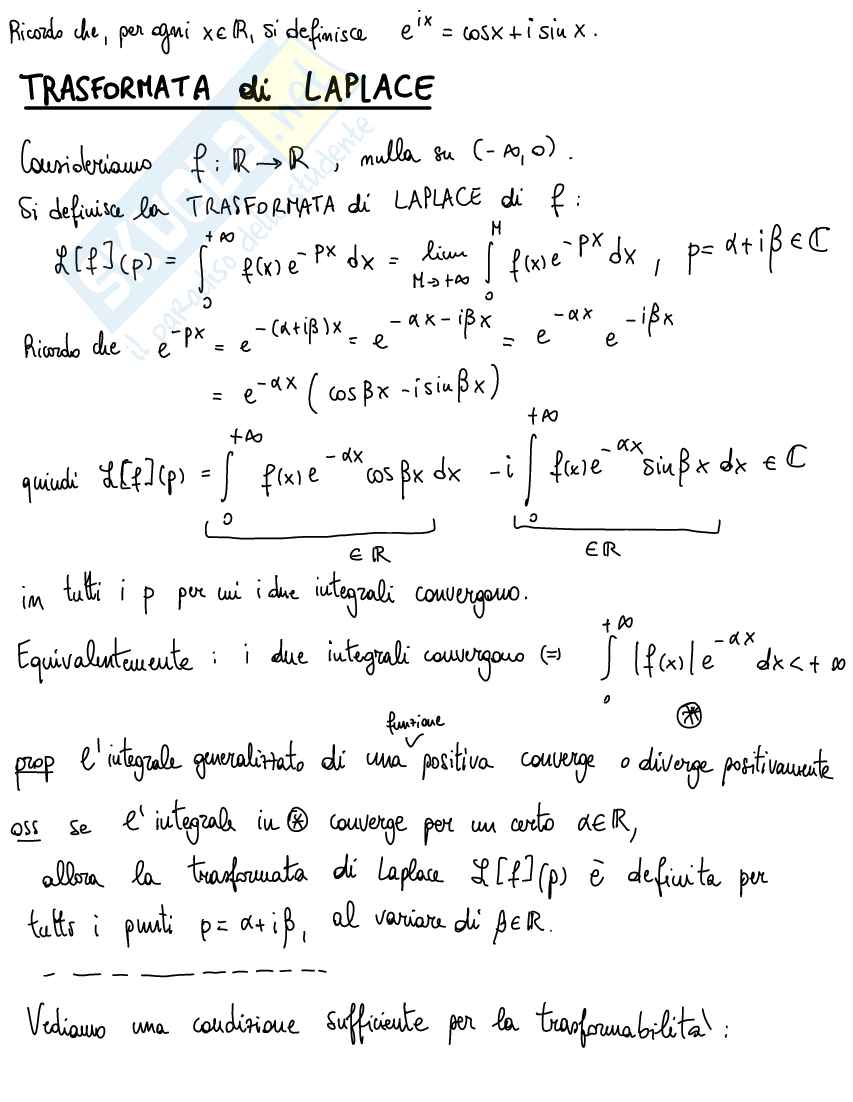 Ricordo che, per ogni x∈ℝ, si definisce e^{ix} = cosx + i sin x.
TRASFORMATA di LAPLACE
Consideriamo f : ℝ → ℝ, nulla su (-∞, 0).
Si definisce la TRASFORMATA di LAPLACE di f :
ℒ[f](p) = ∫_0^{+∞} f(x) e^{-px} dx = lim_{M→+∞} ∫_0^M f(x) e^{-px} dx, p = α+iβ ∈ ℂ
Ricordo che e^{-px} = e^{-(α+iβ)x} = e^{-αx-iβx} = e^{-αx} e^{-iβx}
= e^{-αx} (cos βx - i sin βx)
quindi ℒ[f](p) = ∫_0^{+∞} f(x) e^{-αx} cos βx dx - i ∫_0^{+∞} f(x) e^{-αx} sin βx dx ∈ ℂ
∈ ℝ ∈ ℝ
in tutti i p per cui i due integrali convergono.
Equivalentemente : i due integrali convergono (=) ∫_0^{+∞} |f(x)| e^{-αx} dx < +∞
⊛
prop l'integrale generalizzato di una funzione positiva converge o diverge positivamente
oss se l'integrale in ⊛ converge per un certo α∈ℝ,
allora la trasformata di Laplace ℒ[f](p) è definita per
tutti i punti p = α+iβ, al variare di β∈ℝ.
Vediamo una condizione sufficiente per la trasformabilità :
SKUOLA.net
il paradiso dello studente